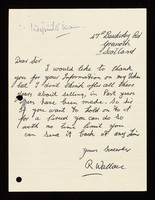 27ᴬ Balderley Rd
Scotland
Dear Sir
I would like to thank
you for your Information on my Take
but I don't think after all these
years about selling, in Past years
years have been made. So as
if you want to hold on to it
for a Period you can do so
with no time limit you
can send it back at any time
Yours Sincerely
R Wallace